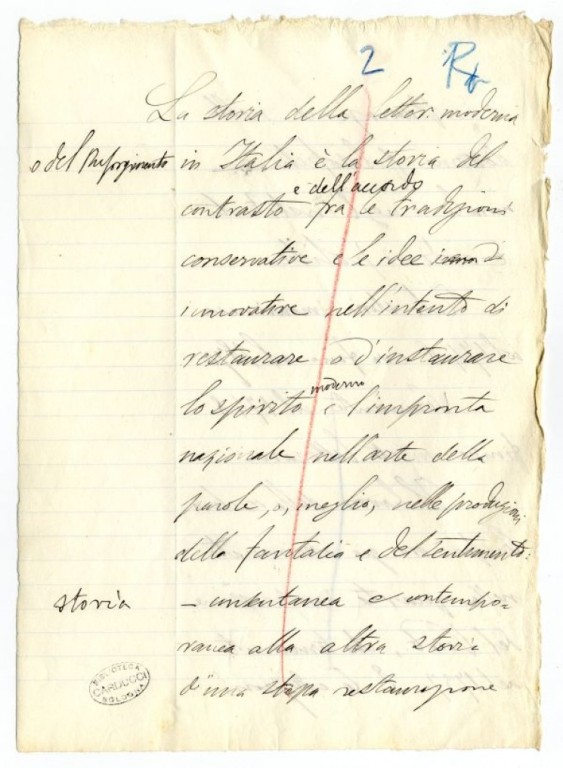 2 R
La storia della letter. moderna
o del Risorgimento
in Italia è la storia del
e dell'accordo
contrasto fra le tradizioni
conservative e le idee
innovative nell'intento di
restaurare o d'instaurare
moderno
lo spirito e l'impronta
nazionale nell'arte della
parola, o, meglio, nelle produzioni
della fantasia e del sentimento:
storia
— consentanea e contempo-
ranea alla altra storia
d'una restaurazione
BIBLIOTECA
CARDUCCI
BOLOGNA